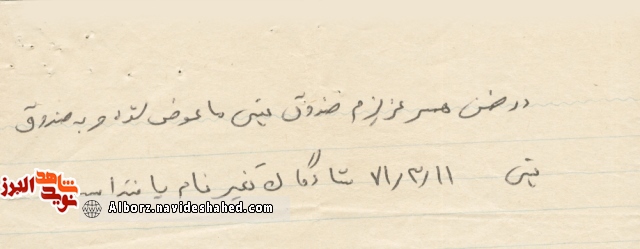 در ضمن همسر عزیزم صندوق پستی ما عوض شده و به صندوق
پستی ۷۱/۳/۱۱ تغیر نام یافته است
شاهد نوید البرز
Alborz.navideshahed.com